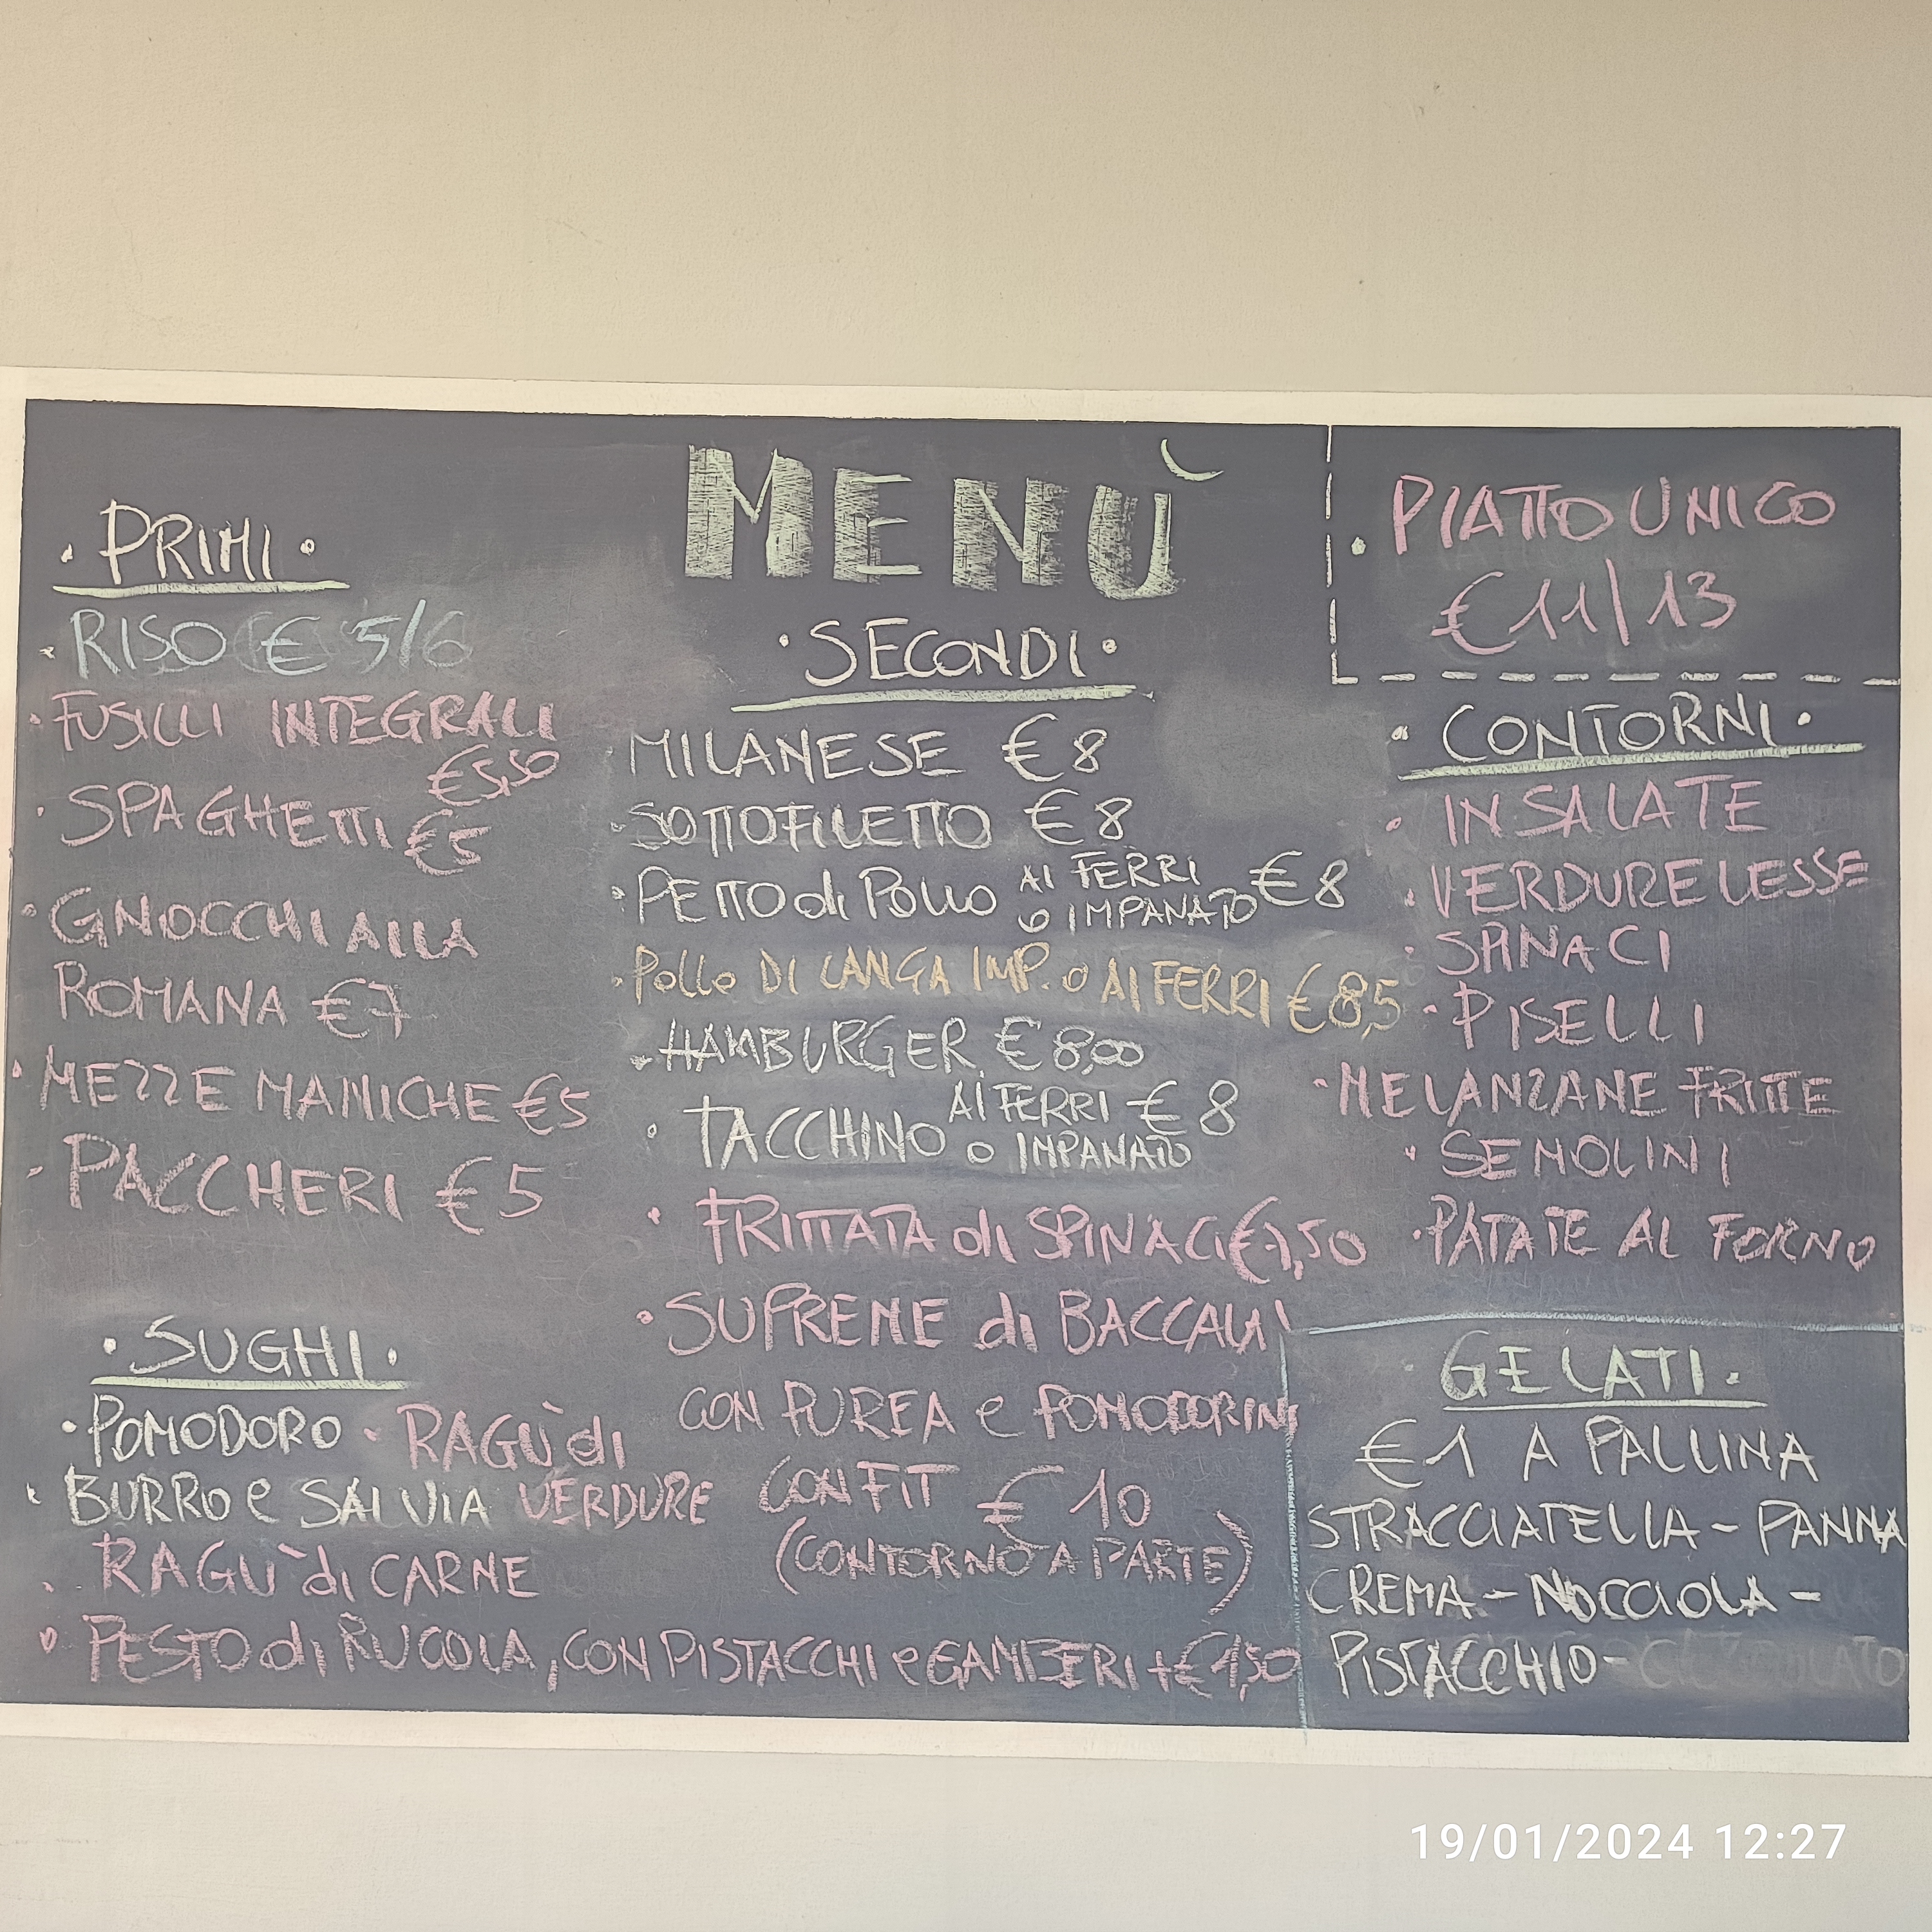 MENÙ
• PRIMI •
• RISO € 5/6
• FUSILLI INTEGRALI
€5,50
• SPAGHETTI €5
• GNOCCHI ALLA
ROMANA €7
• MEZZE MANICHE €5
• PACCHERI €5
• SUGHI •
• POMODORO • RAGÙ di
• BURRO e SALVIA VERDURE
• RAGÙ di CARNE
• PESTO di RUCOLA, CON PISTACCHI e GAMBERI + € 1,50
• SECONDI •
MILANESE € 8
• SOTTOFILETTO € 8
• PETTO di POLLO AI FERRI € 8
o IMPANATO
• Pollo DI LANGA IMP. o AI FERRI € 8,5
• HAMBURGER € 8,00
• TACCHINO AI FERRI € 8
o IMPANATO
• FRITTATA di SPINACI €7,50
• SUPREME di BACCALA'
CON PUREA e POMODORINI
CONFIT € 10
(CONTORNO A PARTE)
• PIATTO UNICO
€ 11/13
• CONTORNI •
• INSALATE
• VERDURE LESSE
• SPINACI
• PISELLI
• MELANZANE FRITTE
• SEMOLINI
• PATATE AL FORNO
• GELATI •
€ 1 A PALLINA
STRACCIATELLA - PANNA
CREMA - NOCCIOLA -
PISTACCHIO -
19/01/2024 12:27